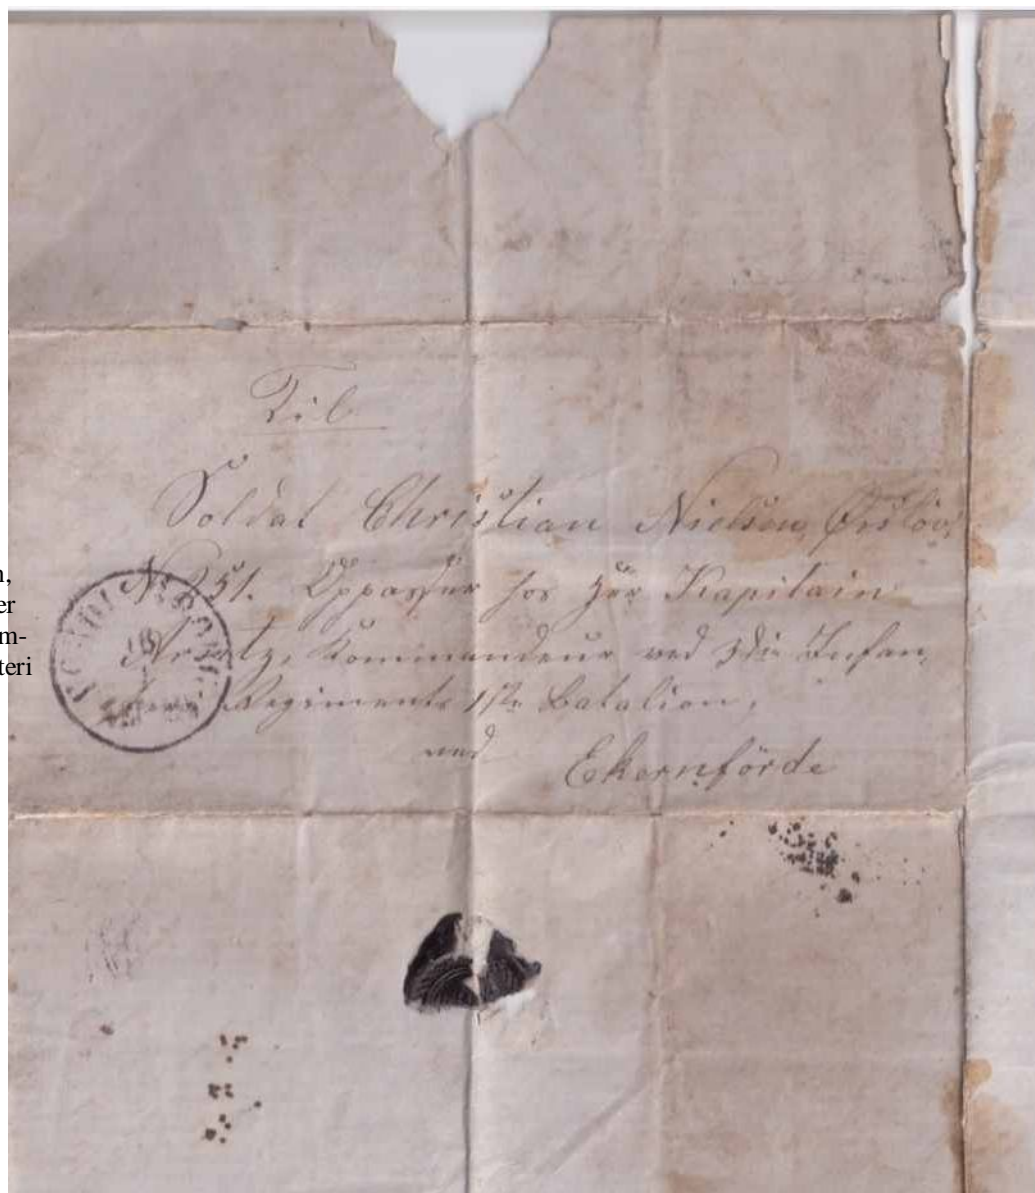 Til
Soldat Christian Nielsen, Ørslöv,
No 251. Oppasser hos Hr Kapitain
Kommandeur ved 3die Infan
Regiments 1ste Batalion,
ved Ekernförde
m-
teri